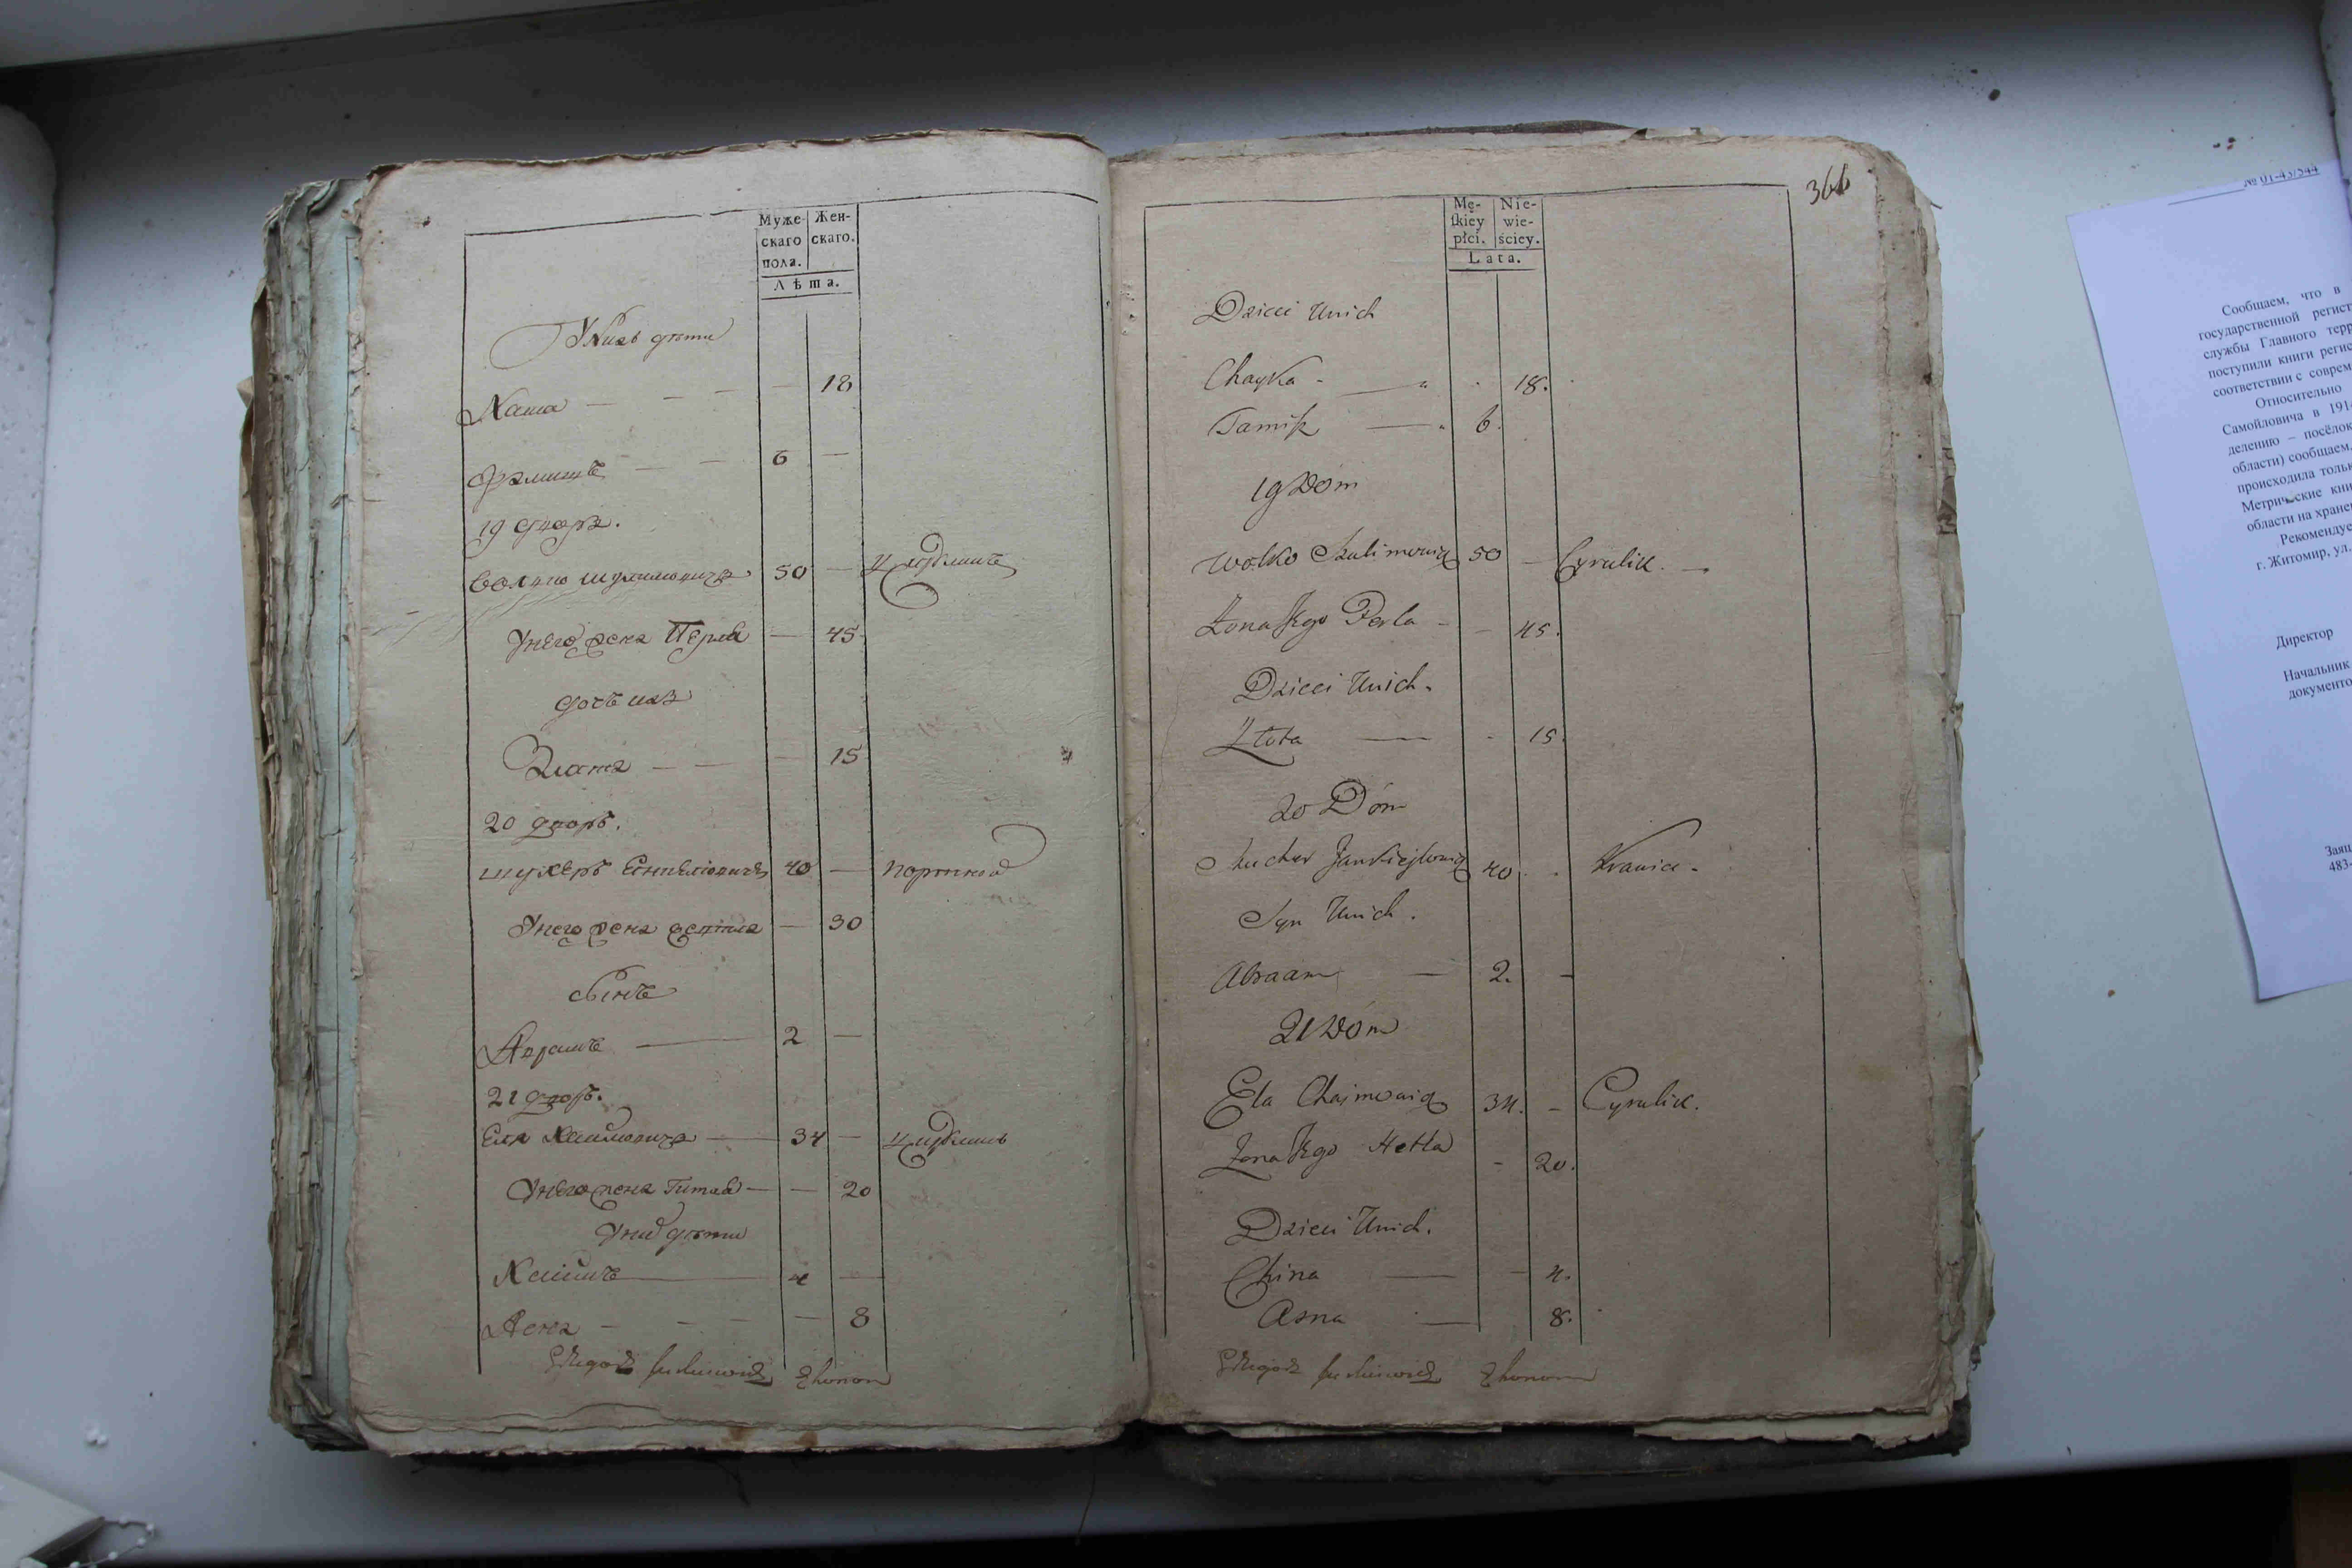 Муже-
скаго
пола.
Жен-
скаго.
Лѣта.
У нихъ дѣти
Хаша — — — — 18
— — 6 —
19 дворъ.
Волько Шулимовичъ 50 — Цирулникъ
У него жена Перла — 45
дочь их
Злота — — — 15
20 дворъ.
Шухеръ 40 — портной
У него жена — 30
сынъ
Аврамъ — 2 —
21 дворъ.
Еля Хаимовичъ — 34 — Цирулникъ
У него жена Гитла — — 20
У них дѣти
Хаимъ — 4 —
Асна — — — — 8
Ekonom
366
Mę-
skiey
płci.
Nie-
wie-
ściey.
Lata.
Dzieci Unich
Chayka - — 18.
— 6.
19 Dóm
Wolko Szulimowicz 50 — Cyrulik. —
Żona Jego Perla - - 45.
Dzieci Unich.
Złota — - 15.
20 Dóm
Szucher Jankielowicz 40. . Krawiec.
Syn Unich.
Abraam — 2. -
21 Dóm
Ela Chaimowicz 34. - Cyrulik.
Żona Jego Hetla - 20.
Dzieci Unich.
China — - 4.
Asna — 8.
Ekonom
№ 01-43/544
Сообщаем, что в
государственной регист
службы Главного терр
поступили книги регис
соответствии с соврем
Относительно
Самойловича в 191
делению – посёлок
области) сообщаем,
происходила тольк
Метрические кни
области на хранен
Рекомендуе
г. Житомир, ул.
Директор
Начальник
документо
483-